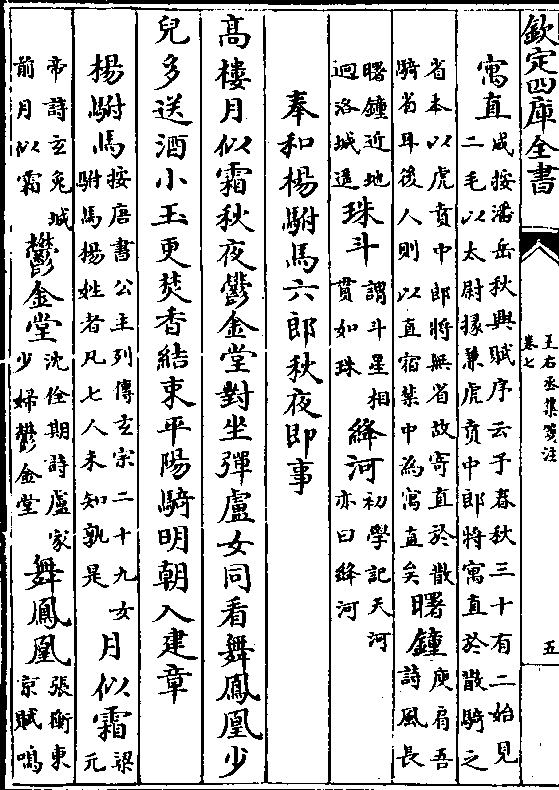 欽定四庫全書
王右丞集箋注
卷七
五
寓直
咸按潘岳秋興賦序云予春秋三十有二始見
二毛以太尉掾兼虎賁中郎將寓直於散騎之
省本以虎賁中郎將無省故寄直於散
騎省耳後人則以直宿禁中為寓直矣
曙鐘
庾肩吾
詩風長
曙鐘近地
迥洛城遥
珠斗
謂斗星相
貫如珠
絳河
初學記天河
亦曰絳河
奉和楊駙馬六郎秋夜即事
高樓月似霜秋夜鬱金堂對坐彈盧女同看舞鳳凰少
兒多送酒小玉更焚香結束平陽騎明朝入建章
楊駙馬
按唐書公主列傳玄宗二十九女
駙馬楊姓者凡七人未知孰是
月似霜
梁元
帝詩玄兔城
前月似霜
鬱金堂
沈佺期詩盧家
少婦鬱金堂
舞鳳凰
張衡東
京賦鳴